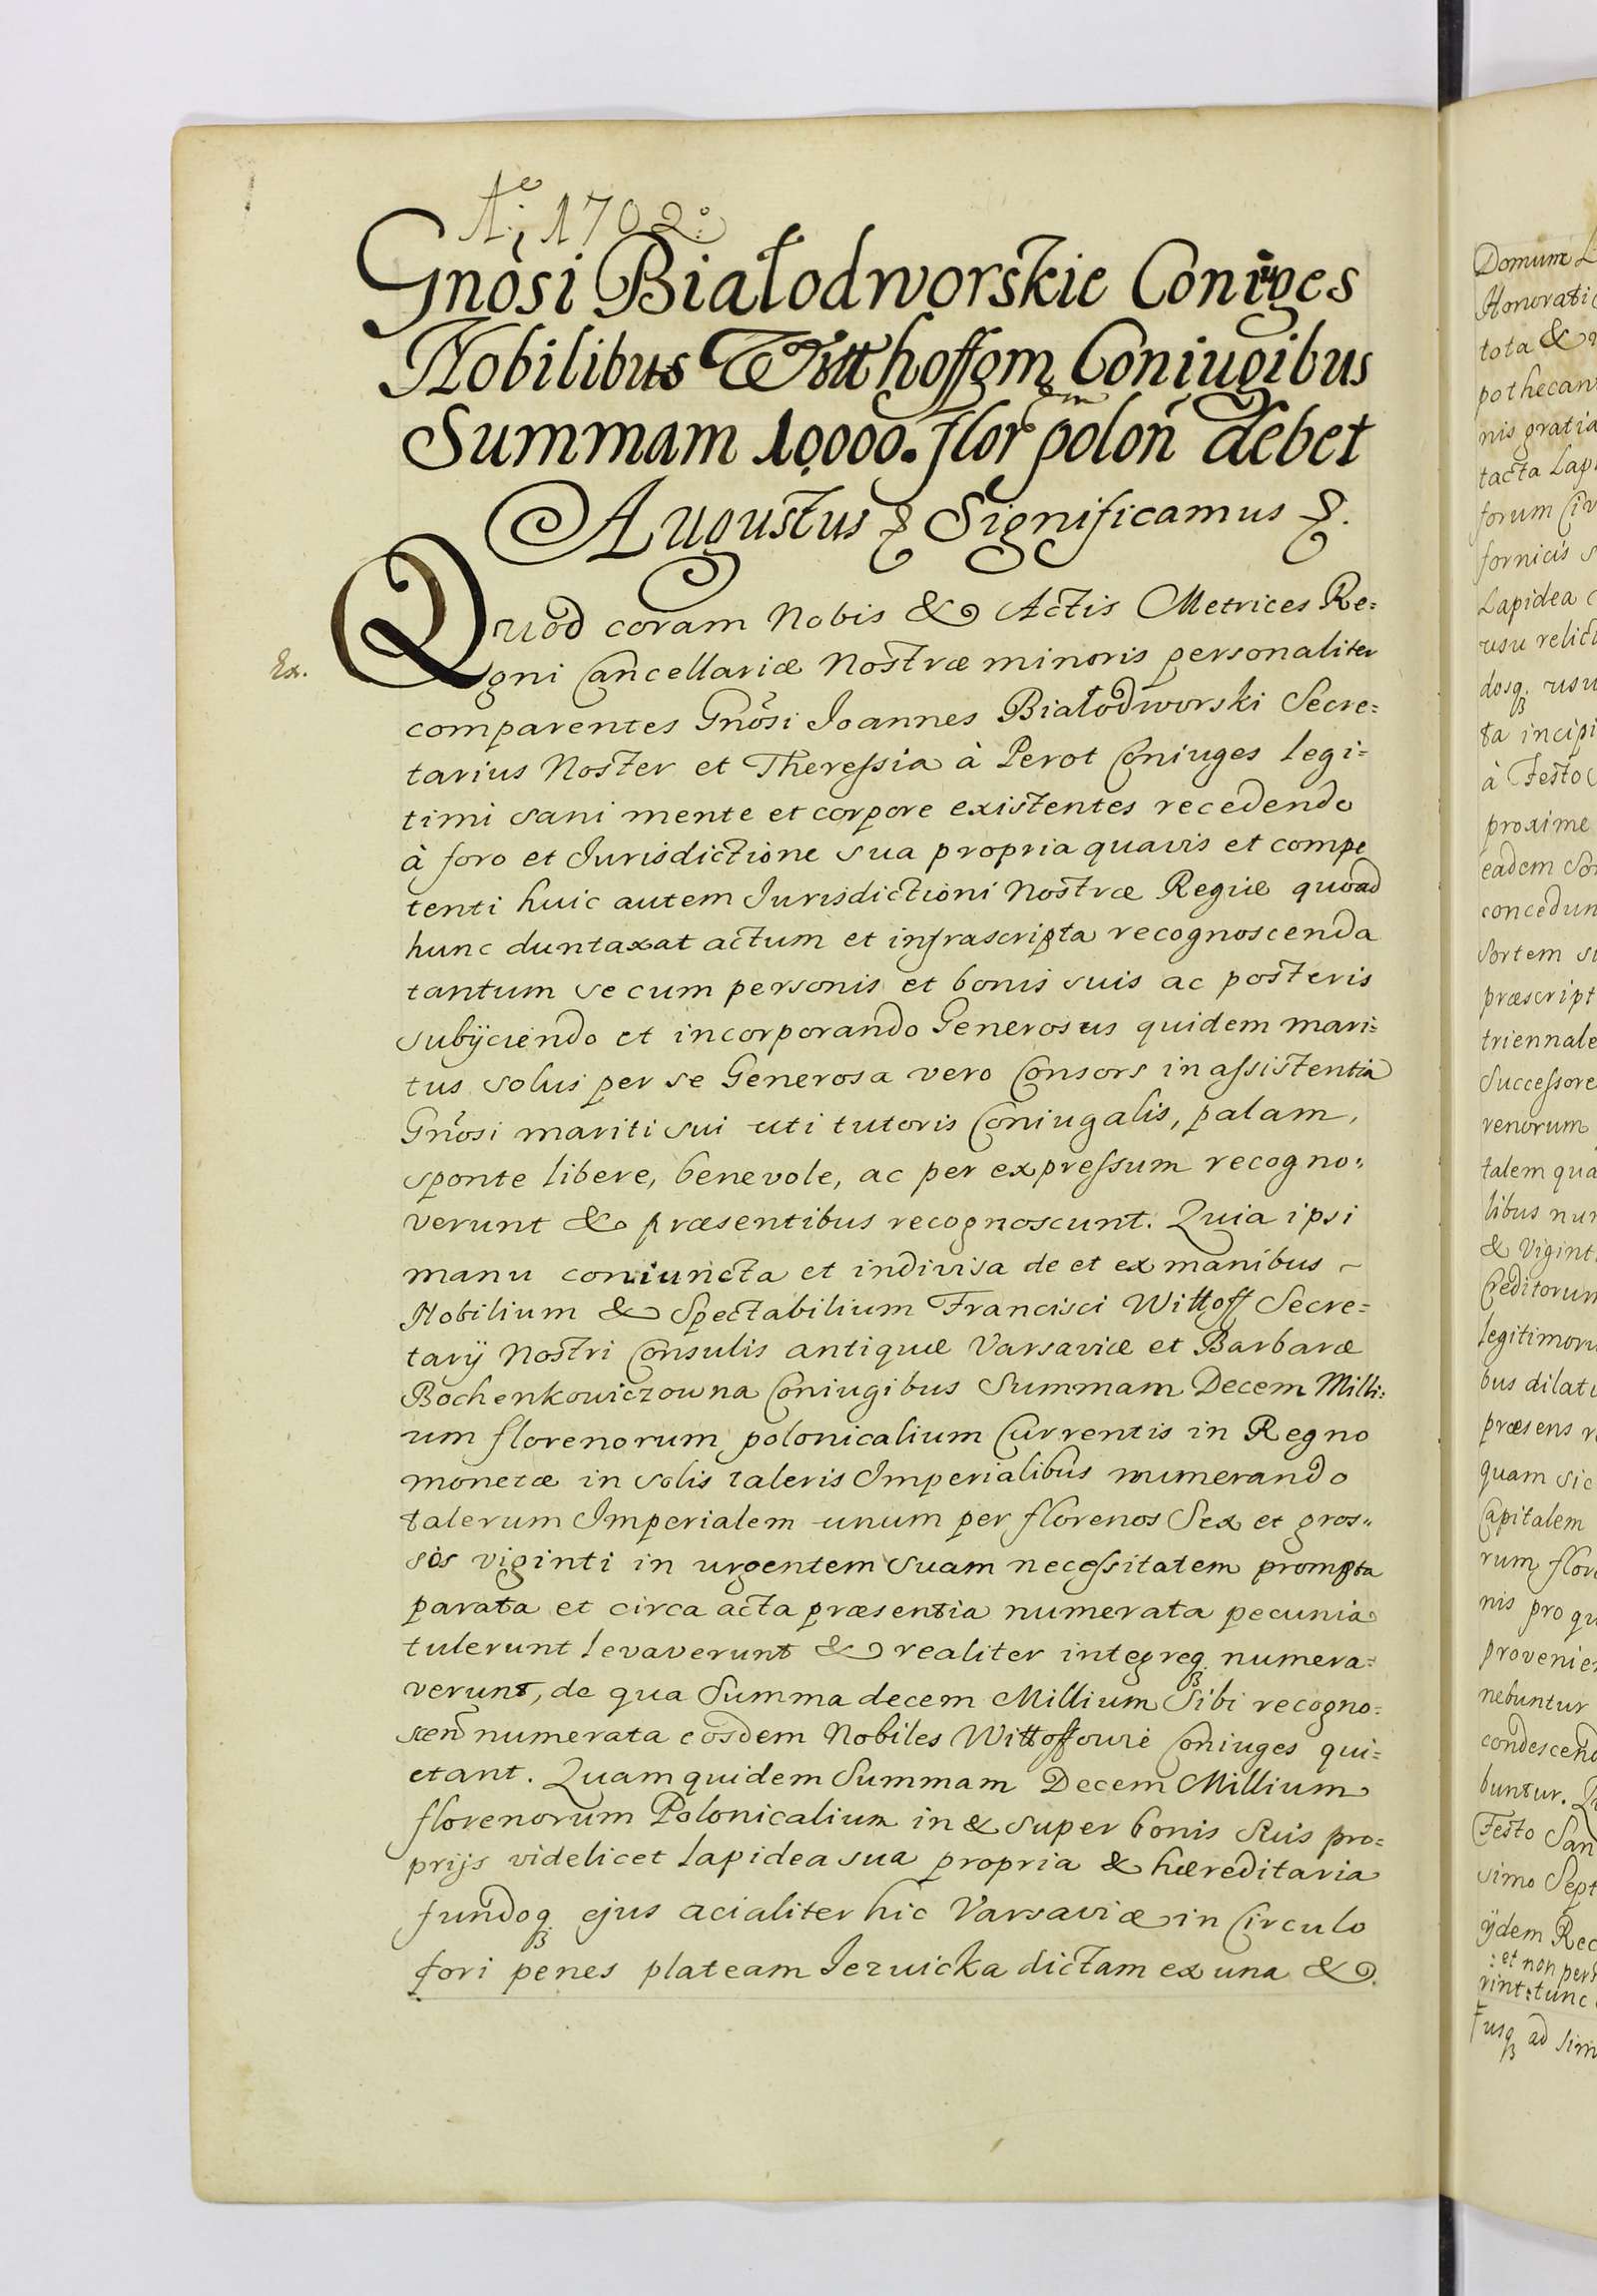 Aͤ: 1702:
Gnōsi Białodworskie Coniuges
Nobilibus Witthoffom Coniugibus
Summam 10000. flor polon̄ debet
Augustus & Significamus &.
Quod coram Nobis & Actis Metrices Re=
Ex.
gni Cancellariæ Nostræ minoris personaliter
comparentes Gnōsi Joannes Białodworski Secre=
tarius Noster et Theressia à Perot Coniuges legi=
timi sani mente et corpore existentes recedendo
à foro et Jurisdictione sua propria quavis et compe
tenti huic autem Jurisdictioni Nostræ Regiæ quoad
hunc duntaxat actum et infrascripta recognoscenda
tantum se cum personis et bonis suis ac posteris
subÿciendo et incorporando Generosus quidem mari=
tus solus per se Generosa vero Consors in assistentia
Gnōsi mariti sui uti tutoris Coniugalis, palam,
sponte libere, benevole, ac per expressum recogno=
verunt & præsentibus recognoscunt. Quia ipsi
manu coniuncta et indivisa de et ex manibus ~
Nobilium & Spectabilium Francisci Wittoff Secre=
tarÿ Nostri Consulis antiquæ Varsaviæ et Barbaræ
Bochenkowiczowna Coniugibus Summam Decem Milli=
um florenorum polonicalium Currentis in Regno
monetæ in solis taleris Imperialibus numerando
talerum Imperialem unum per florenos Sex et gros=
sos viginti in urgentem suam necessitatem prompta
parata et circa acta præsentia numerata pecunia
tulerunt levaverunt & realiter integreq; numera=
verunt, de qua Summa decem Millium Sibi recogno=
scen̄ numerata eosdem Nobiles Wittoffowie Coniuges qui=
etant. Quam quidem Summam Decem Millium
florenorum Polonicalium in & super bonis suis pro=
prijs videlicet lapidea sua propria & hæreditaria
fundoq; ejus acialiter hic Varsaviæ in Circulo
fori penes plateam Jezuicka dictam ex una &
Domum L
Honorati
tota &
pothecan
nis gratia
tacta Lap
forum Civ
fornicis s
Lapidea
usu relict
dosq; usu
ta incipi
à Festo
proxime
eadem So
concedun
Sortem su
præscript
triennale
Successore
renorum
talem qua
libus nu
& Vigint
Creditorum
legitimoru
bus dilat
præsens r
quam sic
Capitalem
rum flor
nis pro qu
provenie
nebuntur
condescend
buntur. Q
Festo San
simo Sept
ÿdem Rec
: et non per
rint: tunc
usq; ad sim